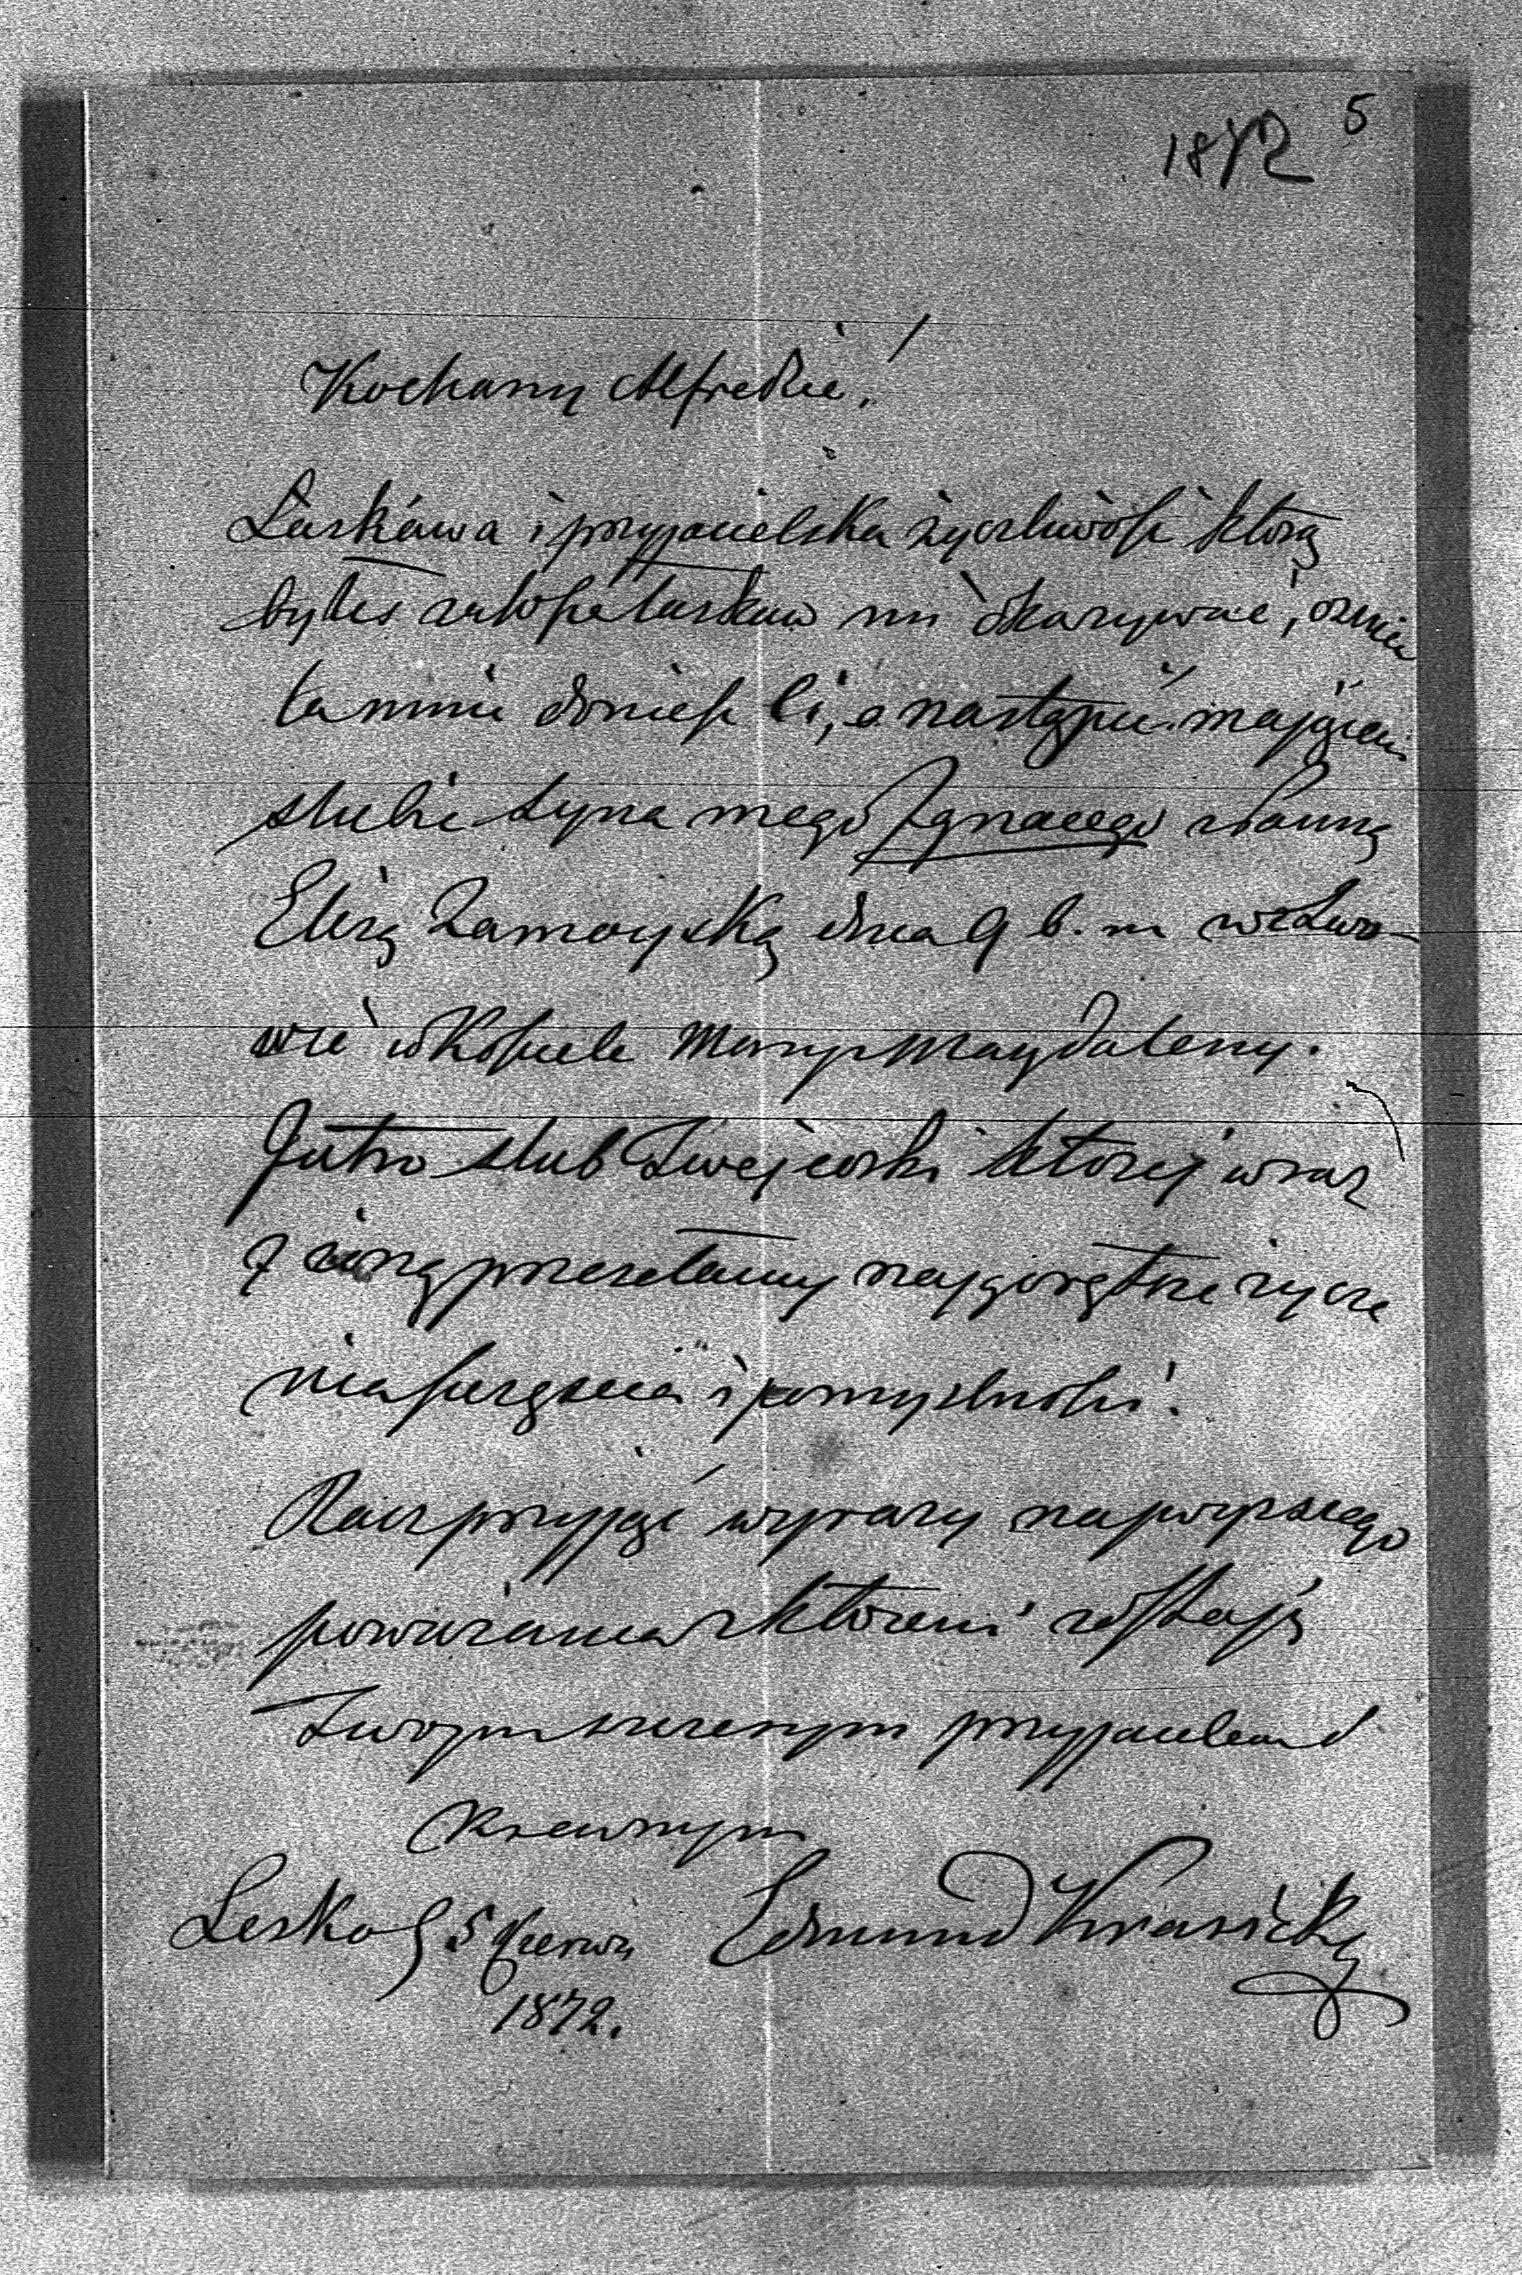 1872 5
Kochany Alfredzie!
Łaskawa i przyjacielska życzliwość którą
byłeś łaskaw mi okazywać,
mnie donieść Ci, o nastąpić mającem
ślubie syna mego Ignacego z Panną
Elizą Zamoyską dnia 9 b. m we Lwo-
wie w Kościele Maryi Magdaleny.
Jutro ślub Twej córki której wraz
z żoną przesełamy najgorętsze życze
nia szczęścia i pomyślności.
Racz przyjąć wyrazy najwyższego
poważania z którem zostaję
Twoym szczerym przyjacielem i
Krewnym
Lesko d 5 Czerwca Edmund Krasicki
1872.